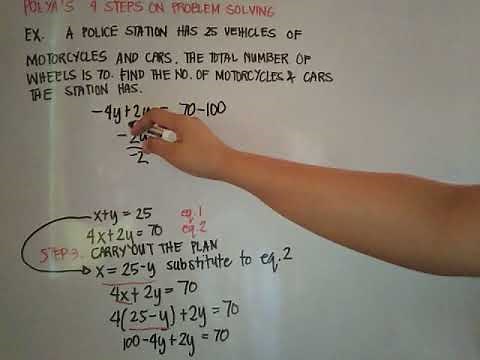 POLYA'S 4 STEPS ON PROBLEM SOLVING
EX. A POLICE STATION HAS 25 VEHICLES OF
MOTORCYCLES AND CARS. THE TOTAL NUMBER OF
WHEELS IS 70. FIND THE NO. OF MOTORCYCLES & CARS
THE STATION HAS.
-4y+2y = 70-100
-2y
-2
x+y = 25 eq.1
4x+2y = 70 eq.2
STEP 3. CARRY OUT THE PLAN
x = 25-y substitute to eq.2
4x+2y = 70
4(25-y)+2y = 70
100-4y+2y = 70